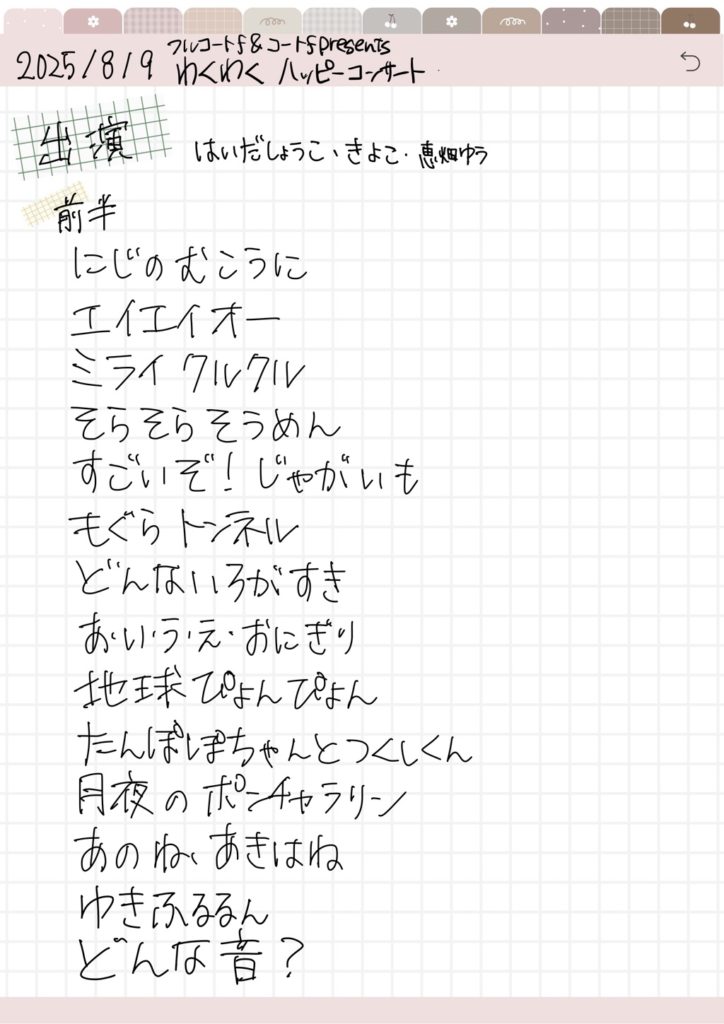 フルコートf&コートf presents
2025/8/9 わくわく ハッピーコンサート
出演 はいだしょうこ、きよこ・恵畑ゆう
前半
にじのむこうに
エイエイオー
ミライクルクル
そらそらそうめん
すごいぞ！じゃがいも
もぐらトンネル
どんないろがすき
あ・い・う・え・おにぎり
地球ぴょんぴょん
たんぽぽちゃんとつくしくん
月夜のポンチャラリン
あのね、あきはね
ゆきふるるん
どんな音？